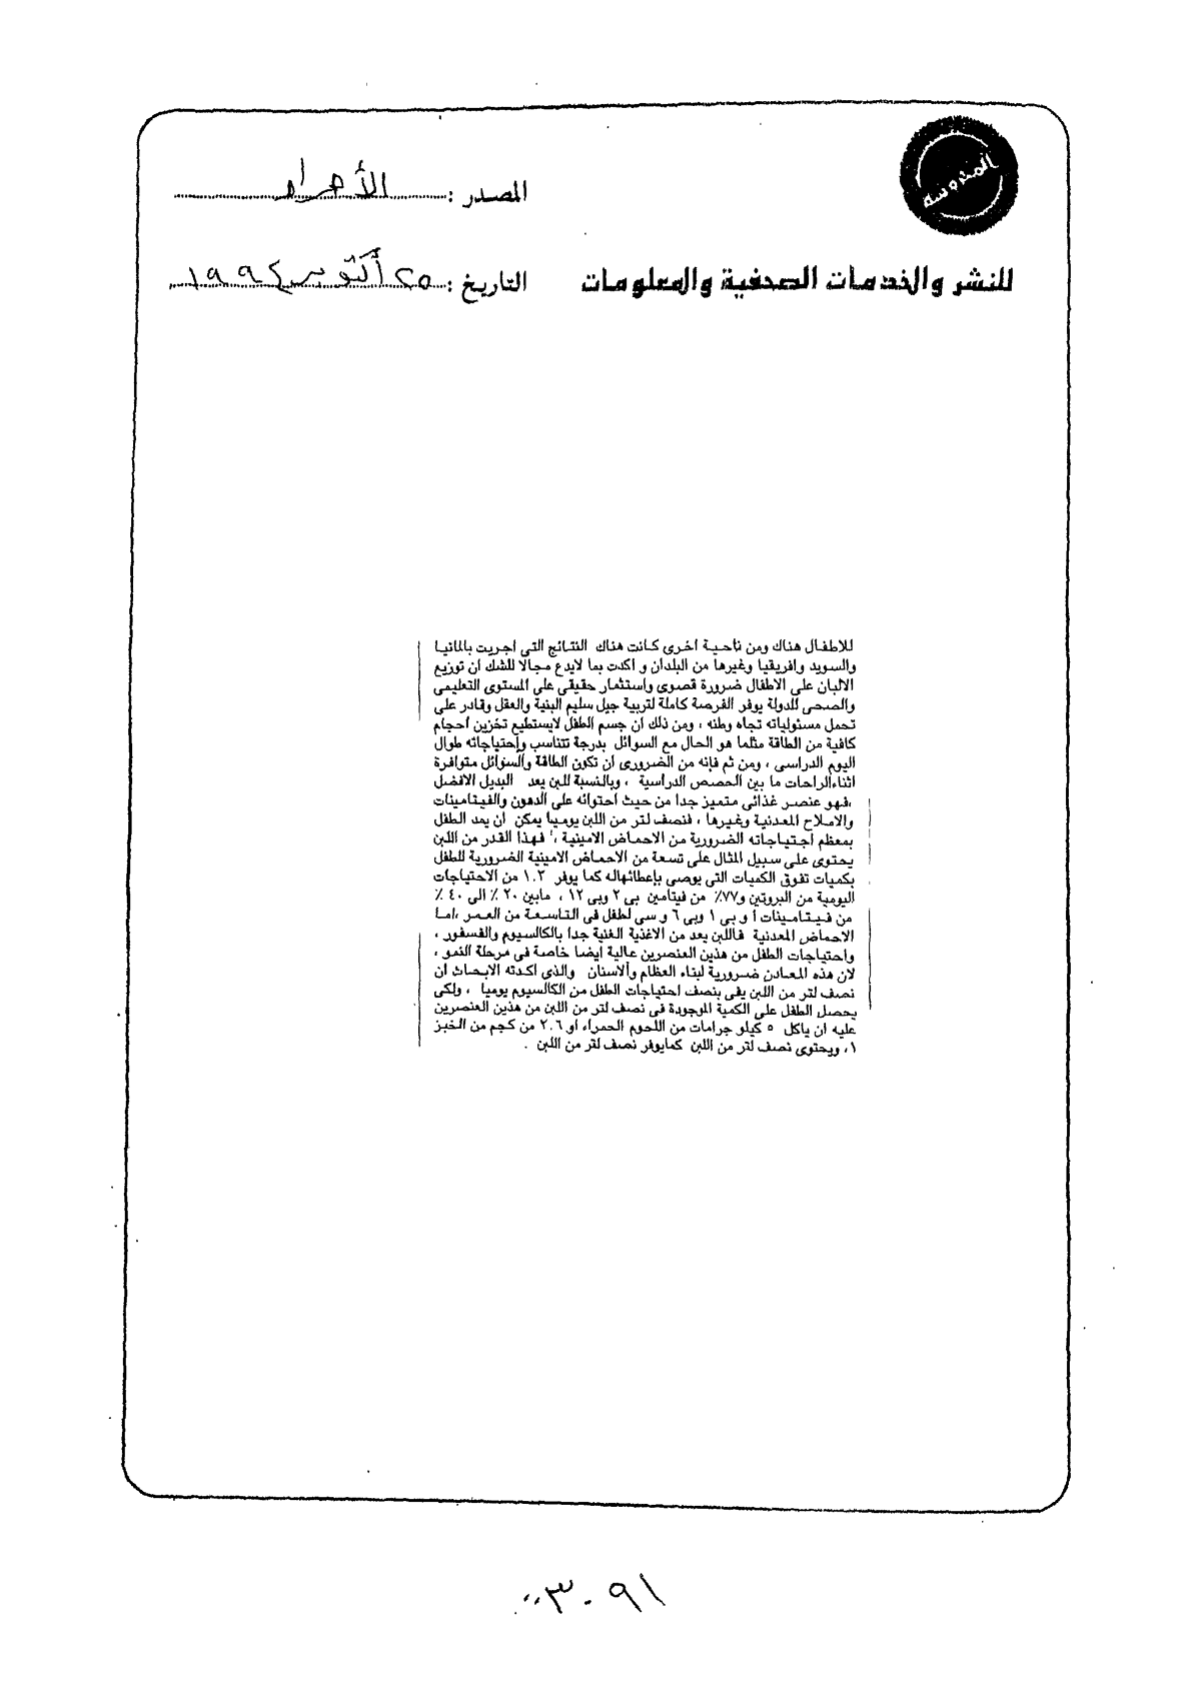 المحروسة
المصدر : الأحرار
للنشر والخدمات الصحفية والمعلومات
التاريخ : ٢٥ أكتوبر ١٩٩٤
للاطفال هناك ومن ناحية اخرى كانت هناك النتائج التى اجريت بالمانيا
والسويد وافريقيا وغيرها من البلدان و اكدت بما لايدع مجالا للشك ان توزيع
الالبان على الاطفال ضرورة قصوى واستثمار حقيقى على المستوى التعليمى
والصحى للدولة يوفر الفرصة كاملة لتربية جيل سليم البنية والعقل وقادر على
تحمل مسئولياته تجاه وطنه ، ومن ذلك ان جسم الطفل لايستطيع تخزين احجام
كافية من الطاقة مثلما هو الحال مع السوائل بدرجة تتناسب وإحتياجاته طوال
اليوم الدراسى ، ومن ثم فإنه من الضرورى ان تكون الطاقة والسوائل متوافرة
اثناء الراحات ما بين الحصص الدراسية ، وبالنسبة للبن يعد البديل الافضل
،فهو عنصر غذائى متميز جدا من حيث احتوائه على الدهون والفيتامينات
والاملاح المعدنية وغيرها ، فنصف لتر من اللبن يوميا يمكن ان يمد الطفل
بمعظم احتياجاته الضرورية من الاحماض الامينية ، فهذا القدر من اللبن
يحتوى على سبيل المثال على تسعة من الاحماض الامينية الضرورية للطفل
بكميات تفوق الكميات التى يوصى بإعطائهاله كما يوفر ١.٣ من الاحتياجات
اليومية من البروتين و٧٧٪ من فيتامين بى ٢ وبى ١٢ ، مابين ٢٠ ٪ الى ٤٠ ٪
من فيتامينات أ و بى ١ وبى ٦ و سى لطفل فى التاسعة من العمر ،اما
الاحماض المعدنية فاللبن يعد من الاغذية الغنية جدا بالكالسيوم والفسفور ،
واحتياجات الطفل من هذين العنصرين عالية ايضا خاصة فى مرحلة النمو ،
لان هذه المعادن ضرورية لبناء العظام والاسنان والذى اكدته الابحاث ان
نصف لتر من اللبن يفى بنصف احتياجات الطفل من الكالسيوم يوميا ، ولكى
يحصل الطفل على الكمية الموجودة فى نصف لتر من اللبن من هذين العنصرين
عليه ان ياكل ٥ كيلو جرامات من اللحوم الحمراء او ٢.٦ من كجم من الخبز
١، ويحتوى نصف لتر من اللبن كمايوفر نصف لتر من اللبن .